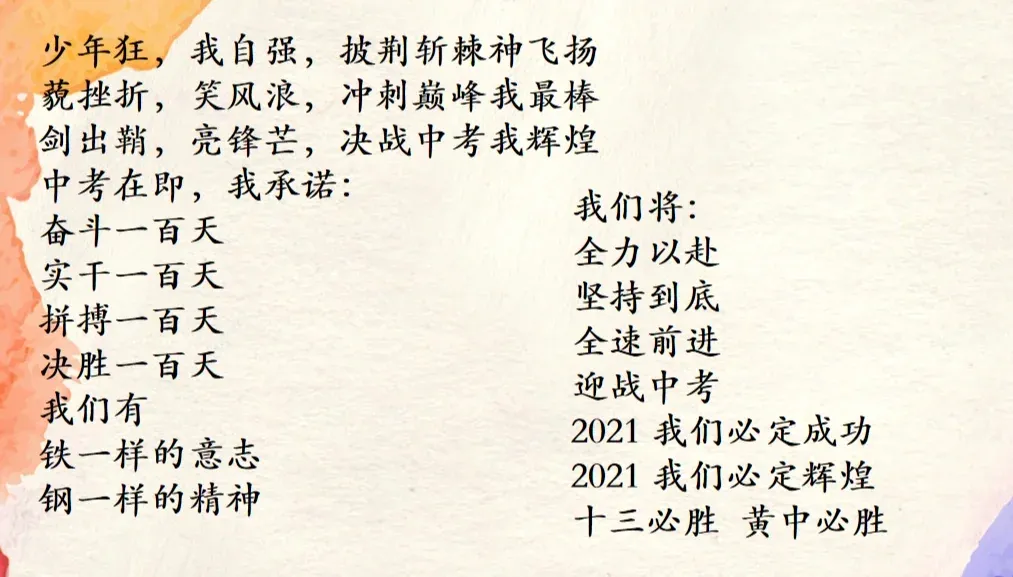 少年狂，我自强，披荆斩棘神飞扬
藐挫折，笑风浪，冲刺巅峰我最棒
剑出鞘，亮锋芒，决战中考我辉煌
中考在即，我承诺：
奋斗一百天
实干一百天
拼搏一百天
决胜一百天
我们有
铁一样的意志
钢一样的精神
我们将：
全力以赴
坚持到底
全速前进
迎战中考
2021 我们必定成功
2021 我们必定辉煌
十三必胜 黄中必胜